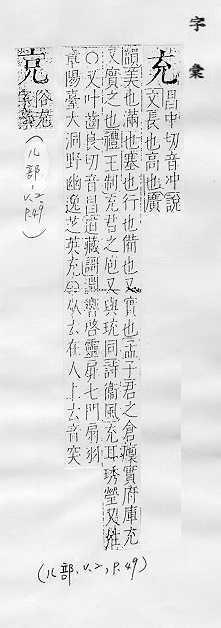 字彙
充
昌中切音冲說
文長也高也廣
美也滿也塞也行也備也又實也孟子君之倉廩實府庫充
又實之也禮王制充君之庖又與珫同詩衞風充耳琇瑩又姓
〇又叶齒良切音昌道藏謌 啓靈扉七門扇羽
章陽臺大洞野幽逸芝英充〇从𠫓在人上𠫓音突
俗充
(儿部.v.2,p.49)
(儿部.v.2,p.49)